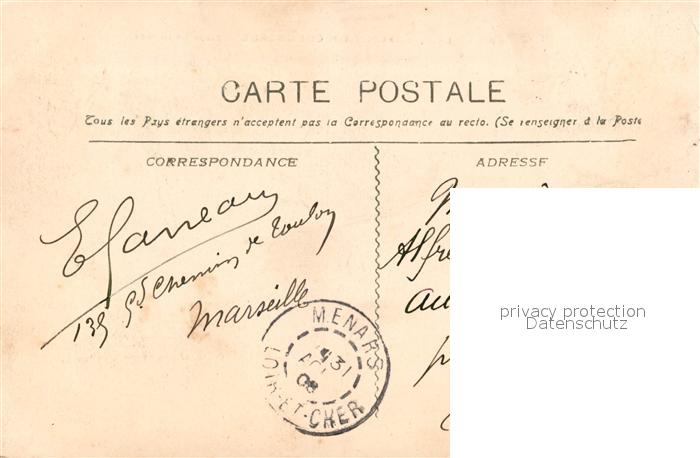 CARTE POSTALE
Tous les Pays étrangers n'acceptent pas la Correspondance au recto. (Se renseigner à la Poste
CORRESPONDANCE
ADRESSE
E Garreau
139 Gd Chemin de Toulon
Marseille
Alfre
au
MENARS
31
AOU
08
LOIR-ET-CHER
privacy protection
Datenschutz